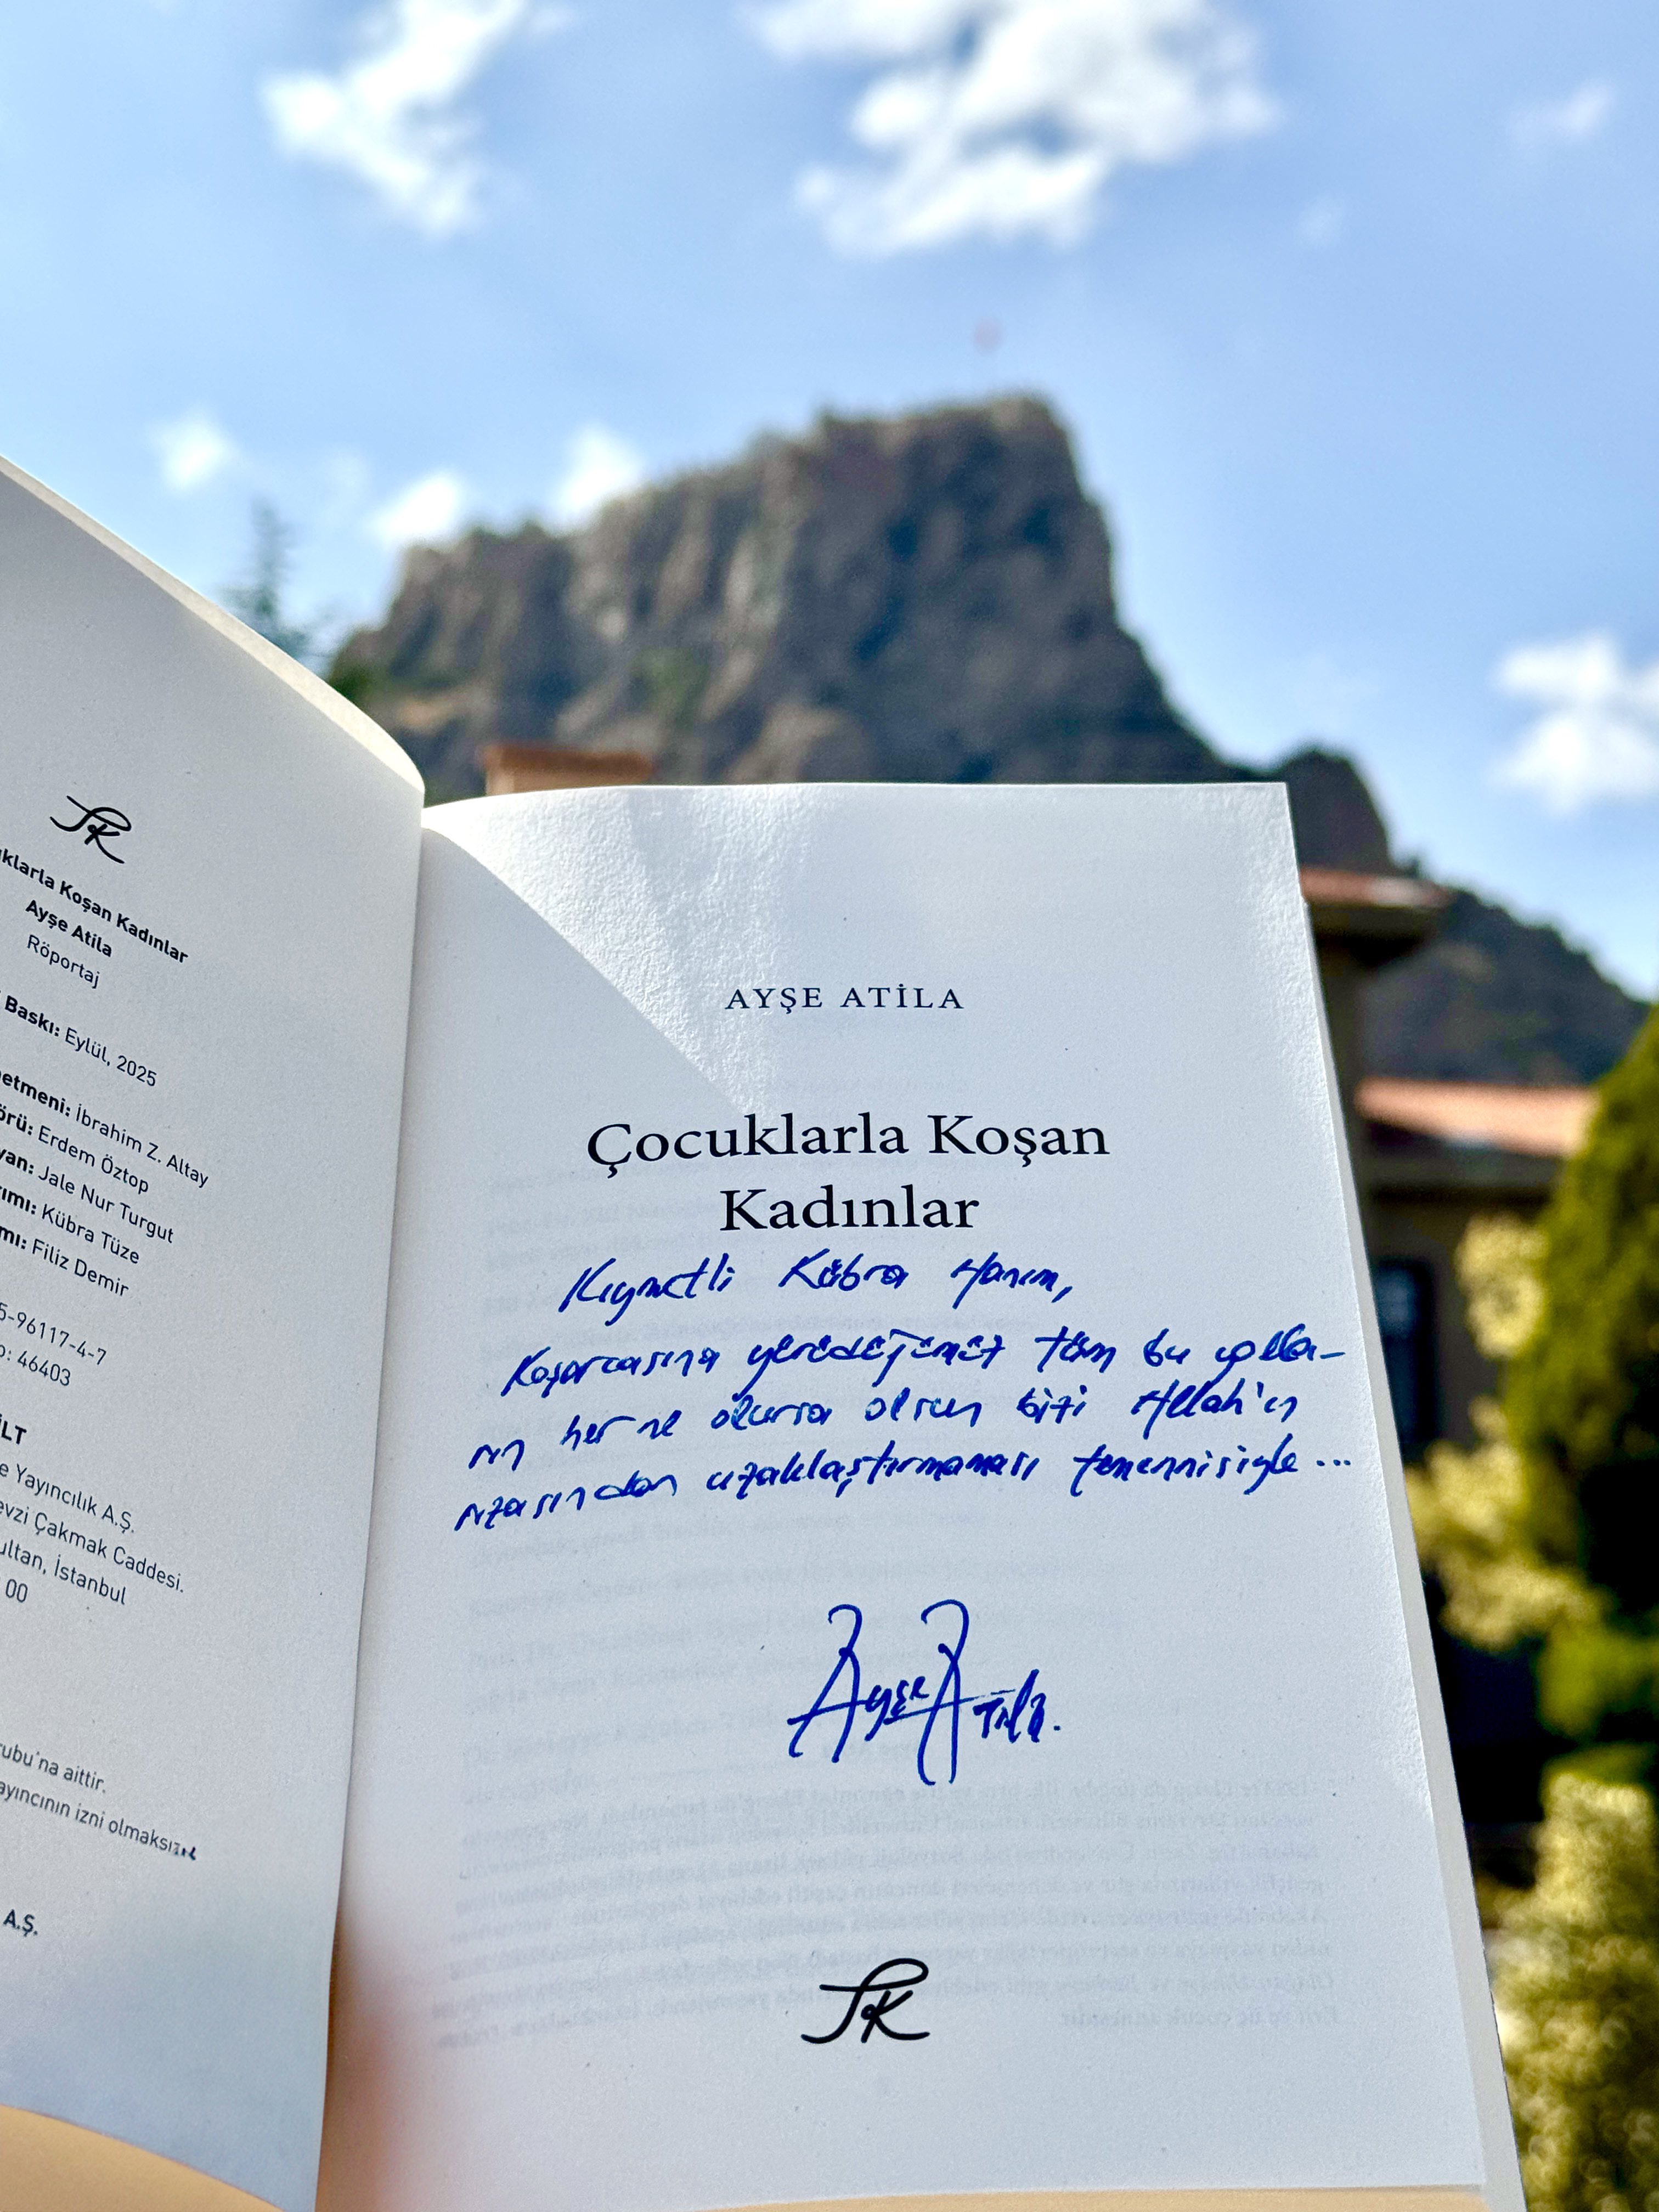 SK
klarla Koşan Kadınlar
Ayşe Atila
Röportaj
Baskı: Eylül, 2025
etmeni: İbrahim Z. Altay
örü: Erdem Öztop
yan: Jale Nur Turgut
ımı: Kübra Tüze
mı: Filiz Demir
5-96117-4-7
o: 46403
LT
e Yayıncılık A.Ş.
evzi Çakmak Caddesi.
ultan, İstanbul
00
rubu'na aittir.
ayıncının izni olmaksızın
A.Ş.
AYŞE ATİLA
Çocuklarla Koşan
Kadınlar
Kıymetli Kübra Hanım,
Koşarcasına yürüdüğümüz tüm bu yolla-
rın her ne olursa olsun bizi Allah'ın
rızasından uzaklaştırmaması temennisiyle...
Ayşe Atila.
SK